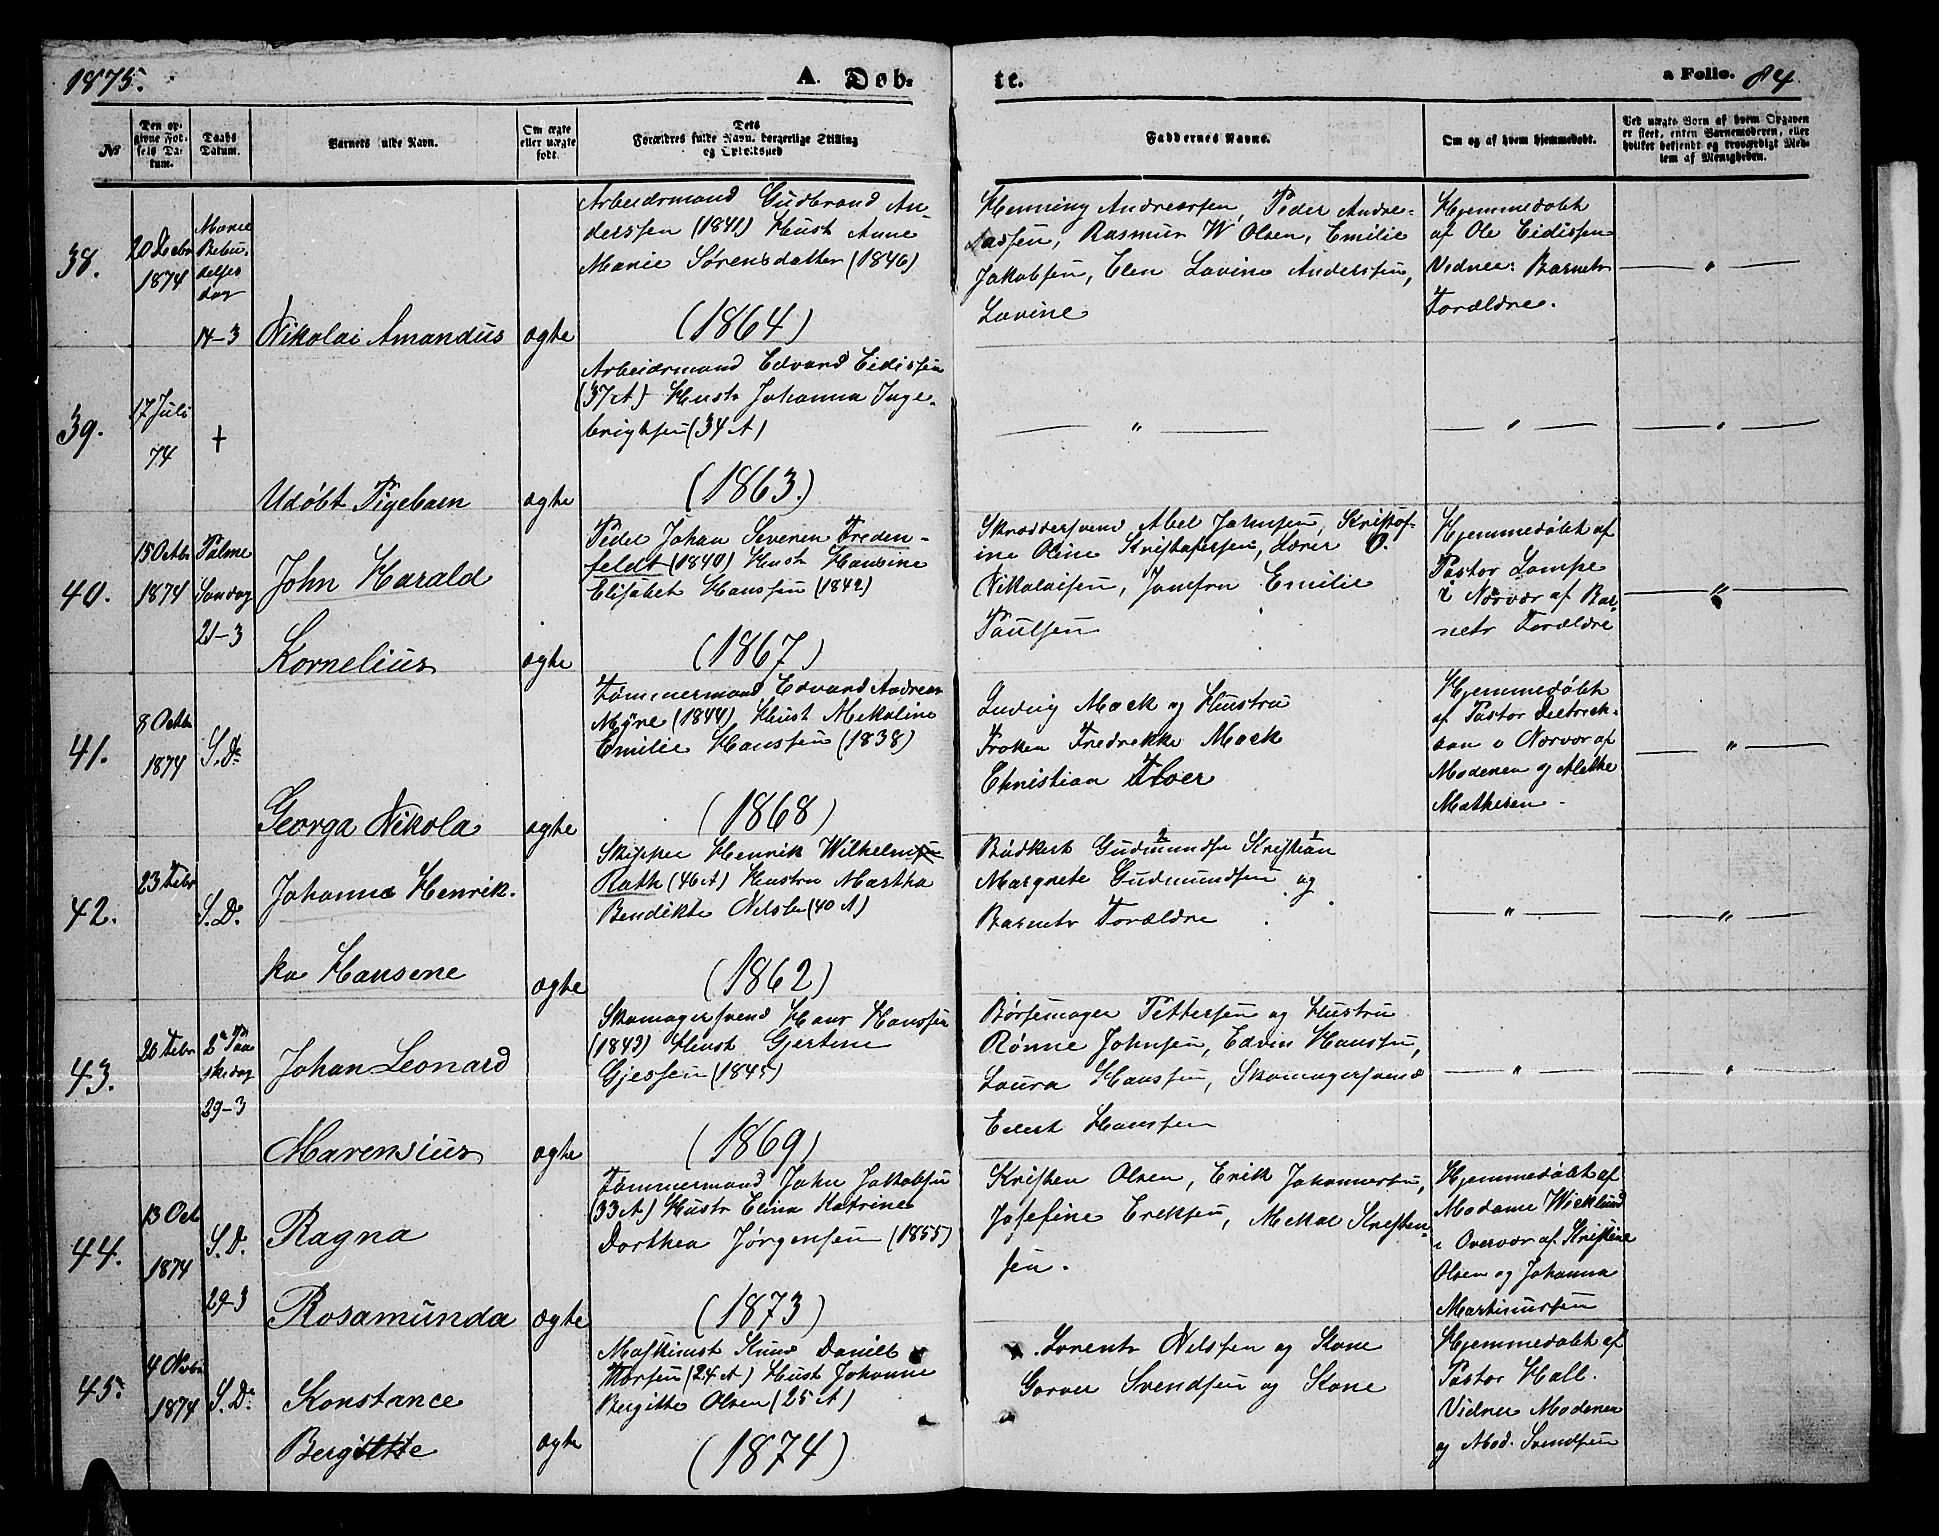 1875.
A. Døb-
te.
a Folio. 84
№
Den op-
givne Fød-
sels Da-
tum.
Daabs
Datum.
Barnets fulde Navn.
Om ægte
eller uægte
født.
Dets
Forældres fulde Navn, borgerlige Stilling
og Opholdssted
Faddernes Navne.
Om og af hvem hjemmedøbt.
Ved uægte Børn af hvem Opgaven
er skeet, enten Barnemoderen, eller
hvilket bekjendt og troværdigt Med-
lem af Menigheden.
38.
20 Decbr
1874
Marie
Bebu-
delses
dag
14-3
Nikolai Amandus
ægte
Arbeidsmand Gudbrand An-
derssen (1841) Hust Anne
Marie Sørensdatter (1846)
(1864)
Henning Andreassen, Peder Andre-
assen, Rasmus W Olsen, Emilie
Jakobsen, Elen Lavine Anderssen,
Lavine
Hjemmedøbt
af Ole Eidissen
Vidne: Barnets
Forældre.
"
39.
17 Juli
74
+
Udøbt Pigebarn
ægte
Arbeidsmand Edvard Eidissen
(37 A) Hustr Johanna Inge-
brigtsen (34 A)
(1863.)
"
"
"
40.
15 Octbr
1874
Palme
Søndag
21-3
John Harald
Kornelius
ægte
Peder Johan Severin Freden-
feldt (1840) Hust Hansine
Elisabet Hanssen (1842)
(1867)
Skræddersvend Abel Johnsen, Kristof-
ine Oline Kristofersen, Lærer O.
Nikolaisen, Jomfru Emilie
Paulsen
Hjemmedøbt af
Pastor Lampe
i Norvær af Bar-
nets Forældre
"
41.
8 Octbr
1874
S.D.
Georga Nikola
ægte
Tømmermand Edvard Andreas
Myre (1844) Hust Nikoline
Emilie Hanssen (1838)
(1868)
Ludvig Mack og Hustru
Frøken Fredrekke Mack
Christian Floer
Hjemmedøbt
af Pastor Dietrich-
son i Norvær af
Moderen og Alethe
Mathesen.
"
42.
23 Febr
S.D.
Johanne Henrik-
ka Hansene
ægte
Skipper Henrik Wilhelm
Rath (46 A) Hustru Martha
Bendikte Nilsen (40 A)
(1862)
Bødkers Gudmundsen Kristian
Margrete Gudmundsen og
Barnets Forældre
"
"
43.
26 Febr
2n Paa
skedag
29-3
Johan Leonard
Marensius
ægte
Skomagersvend Hans Hanssen
(1843) Hust Gjertine
Gjessen (1845)
(1869)
Børsemager Pettersen og Hustru
Rønne Johnsen, Edvin Hanssen,
Laura Hanssen, Skomagersvend
Evert Hanssen
"
"
44.
13 Oct
1874
S.D.
29-3
Ragna
Rosamunda
ægte
Tømmermand John Jakobsen
(33 A) Hustr Elina Katrine
Dorthea Jørgensen (1855)
(1873)
Kristen Olsen, Erik Johannessen,
Josefine Eriksen, Mekal Kristen-
sen.
Hjemmedøbt af
Madame Wicklund
i Overvær af Kristine
Olsen og Johanna
Martinussen
45.
4 Novbr
1874
S.D.
Konstance
Bergitte
ægte
Maskinist Knud Daniel
Thorsen (24 A) Hust Johanne
Bergitte Olsen (25 A)
(1874)
Lorents Nilssen og Kone
Gorver Svendsen og Kone
Hjemmedøbt af
Pastor Hall.
Vidner Moderen
og Mad. Svendsen